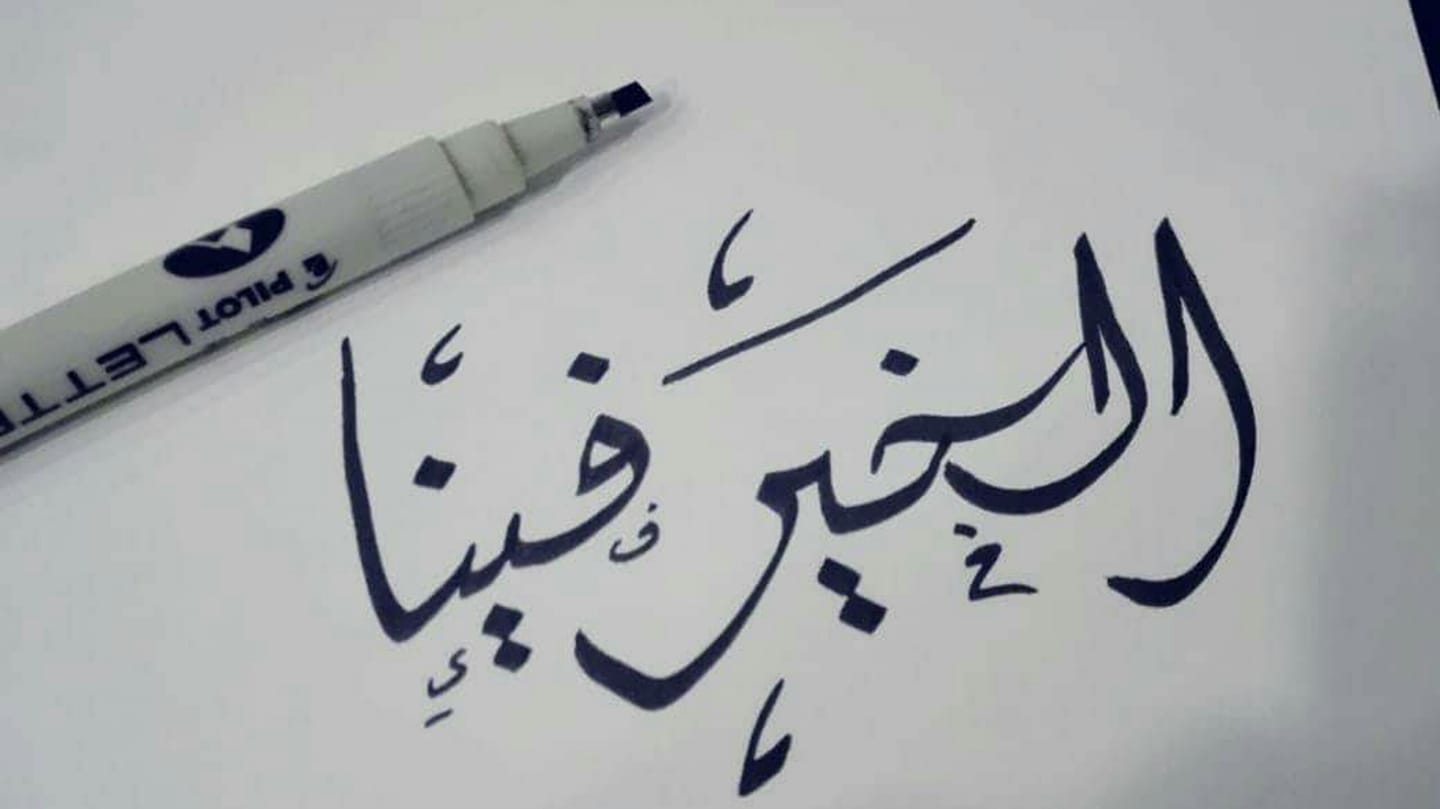 الخير فينا
PILOT LETTE